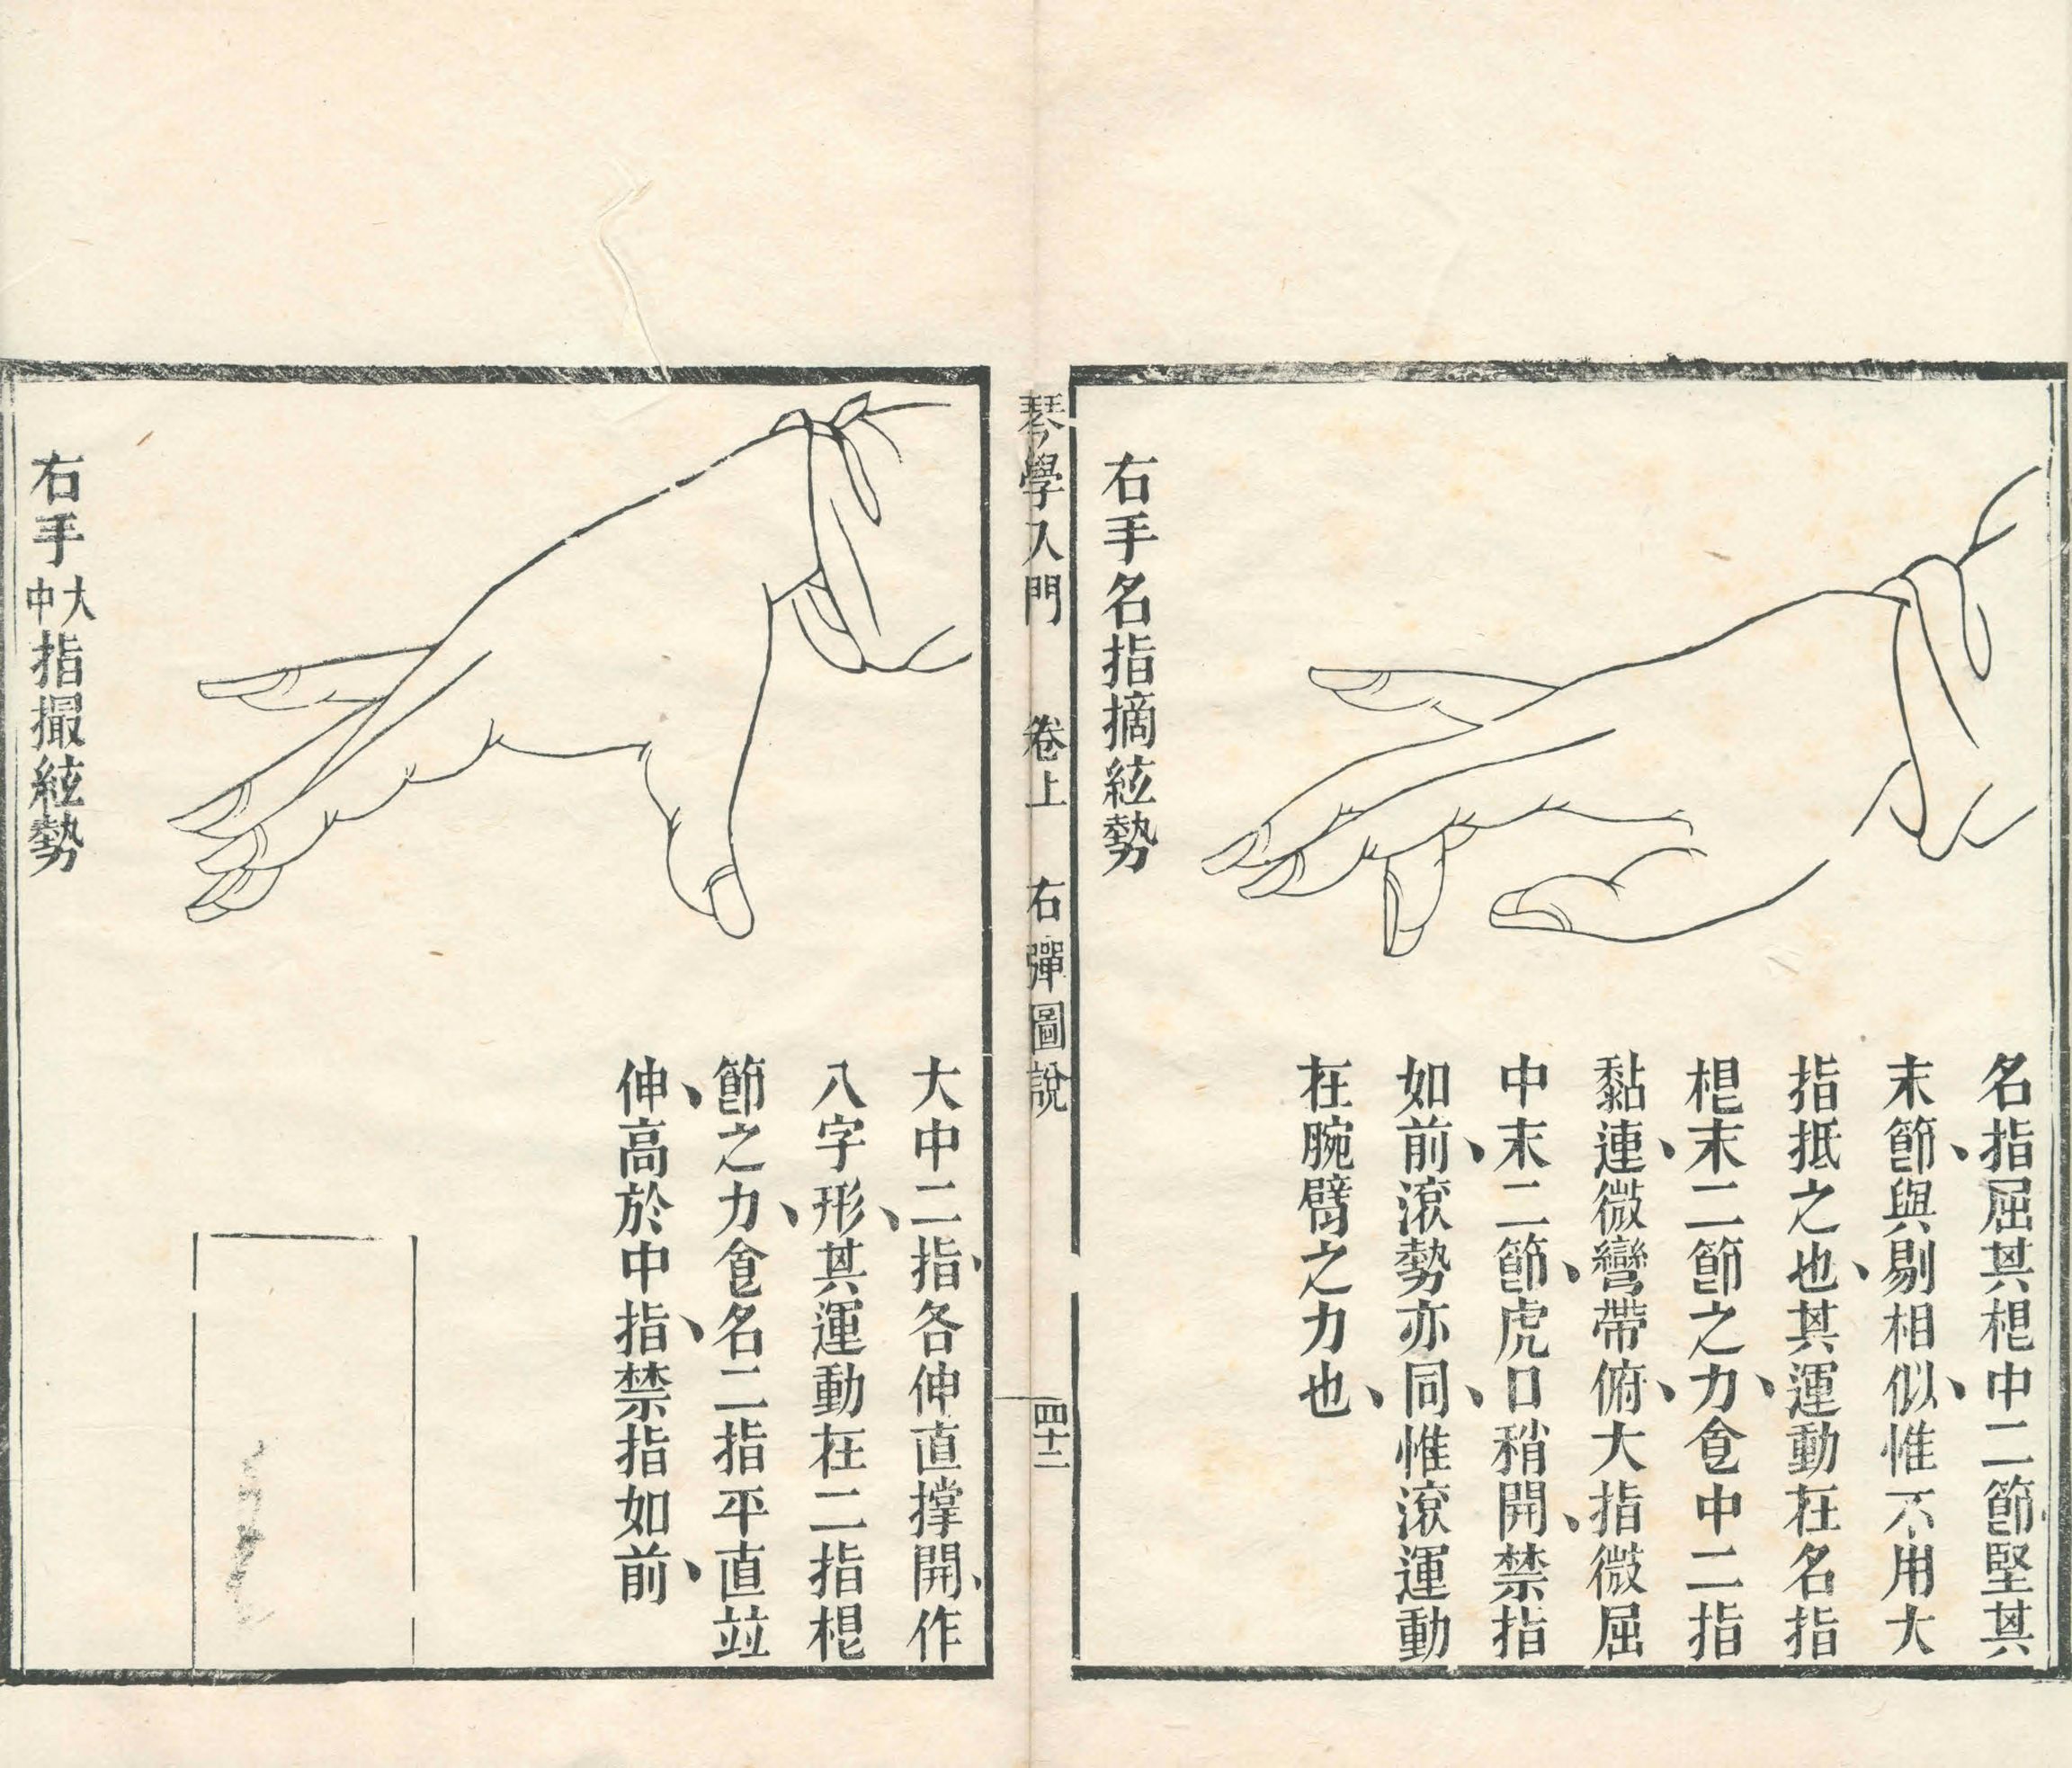 名指屈其根中二節堅其
末節與剔相似惟不用大
指抵之也其運動在名指
根末二節之力食中二指
黏連微彎帶俯大指微屈
中末二節虎口稍開禁指
如前滾勢亦同惟滾運動
在腕臂之力也
右手名指摘絃勢
琴學入門 卷上 右彈圖說 四十二
大中二指各伸直撑開作
八字形其運動在二指根
節之力食名二指平直竝
伸高於中指禁指如前
右手大中指撮絃勢